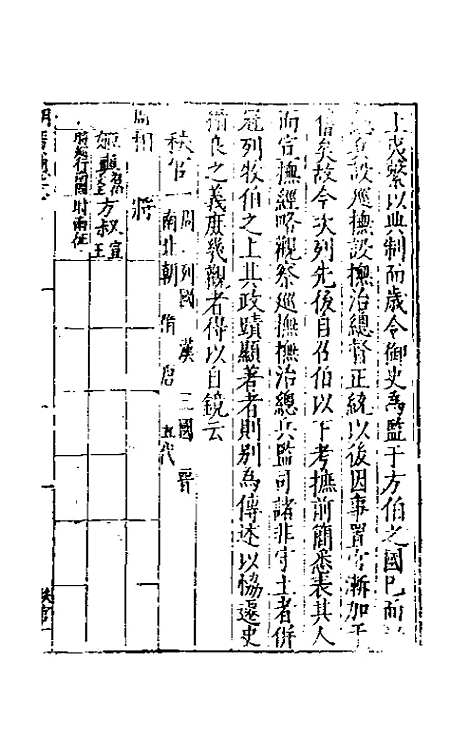 上夾繫以典制而歲令御史為監于方伯之國已而
設巡撫設撫治總督正統以後因事置官漸加于
僭矣故今次列先後自召伯以下考摭前簡悉表其人
而官撫經略觀察巡撫撫治總兵監司諸非守土者併
冠列牧伯之上其政蹟顯著者則別為傳述以恊遷史
循良之義庶幾觀者得以自鏡云
秩官一 周 列國 漢 三國 晉
南北朝 隋 唐 五代
周 相 將
姬奭 召公 方叔 宣王
時
秩官一